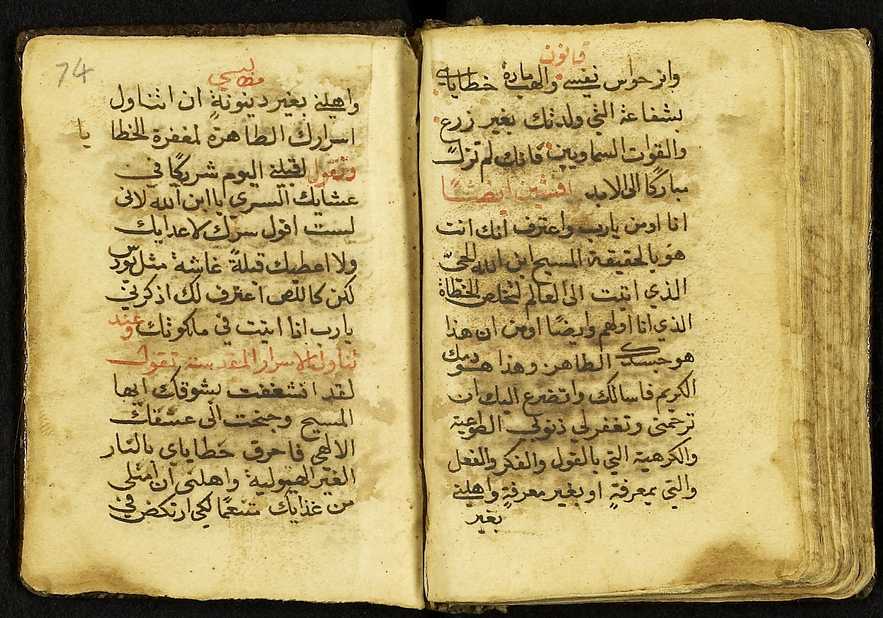 قانون
وانر حواس نفسي والهب مادة خطاياي
بشفاعة التي ولدتك بغير زرع
والقوات السماويين فانك لم تزل
مباركًا الى الابد افشين ايضًا
انا اومن يارب واعترف انك انت
هو بالحقيقة المسيح ابن الله الحي
الذي اتيت الى العالم لتخلص الخطاة
الذي انا اولهم وايضًا اومن ان هذا
هو جسدك الطاهر وهذا هو دمك
الكريم فاسالك واتضرع اليك ان
ترحمني وتغفر لي ذنوبي الطوعية
والكرهية التي بالقول والفكر والفعل
والتي بمعرفةٍ او بغير معرفةٍ واهلني
بغير
74
مطاليبسي
واهلني بغير دينونةٍ ان اتناول
اسرارك الطاهرة لمغفرة الخطايا
وتقول اقبلني اليوم شريكًا في
عشايك السري ياابن الله لاني
لست اقول سرك لاعدايك
ولا اعطيك قبلةً غاشة مثل يودس
لكن كاللص اعترف لك اذكرني
يارب اذا اتيت في ملكوتك وعند
تناولك الاسرار المقدسة تقول
لقد اشغفت بشوقك ايها
المسيح وجنحت الى عشقك
الالهي فاحرق خطاياي بالنار
الغير الهيولية واهلني ان امتلى
من غذايك متنعمًا لكي ارتكض في